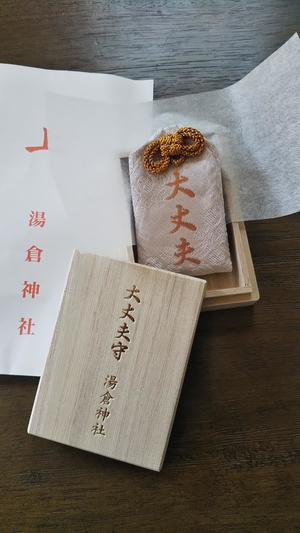 湯倉神社
大丈夫
大丈夫守
湯倉神社